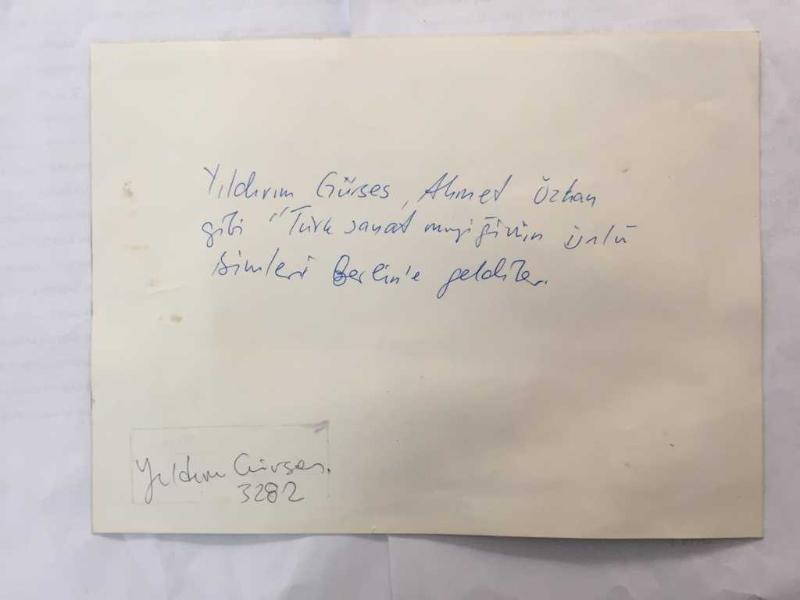 Yıldırım Gürses, Ahmet Özhan
gibi "Türk sanat muziğinin ünlü
isimleri Berlin'e geldiler.
Yıldırım Gürses.
3282